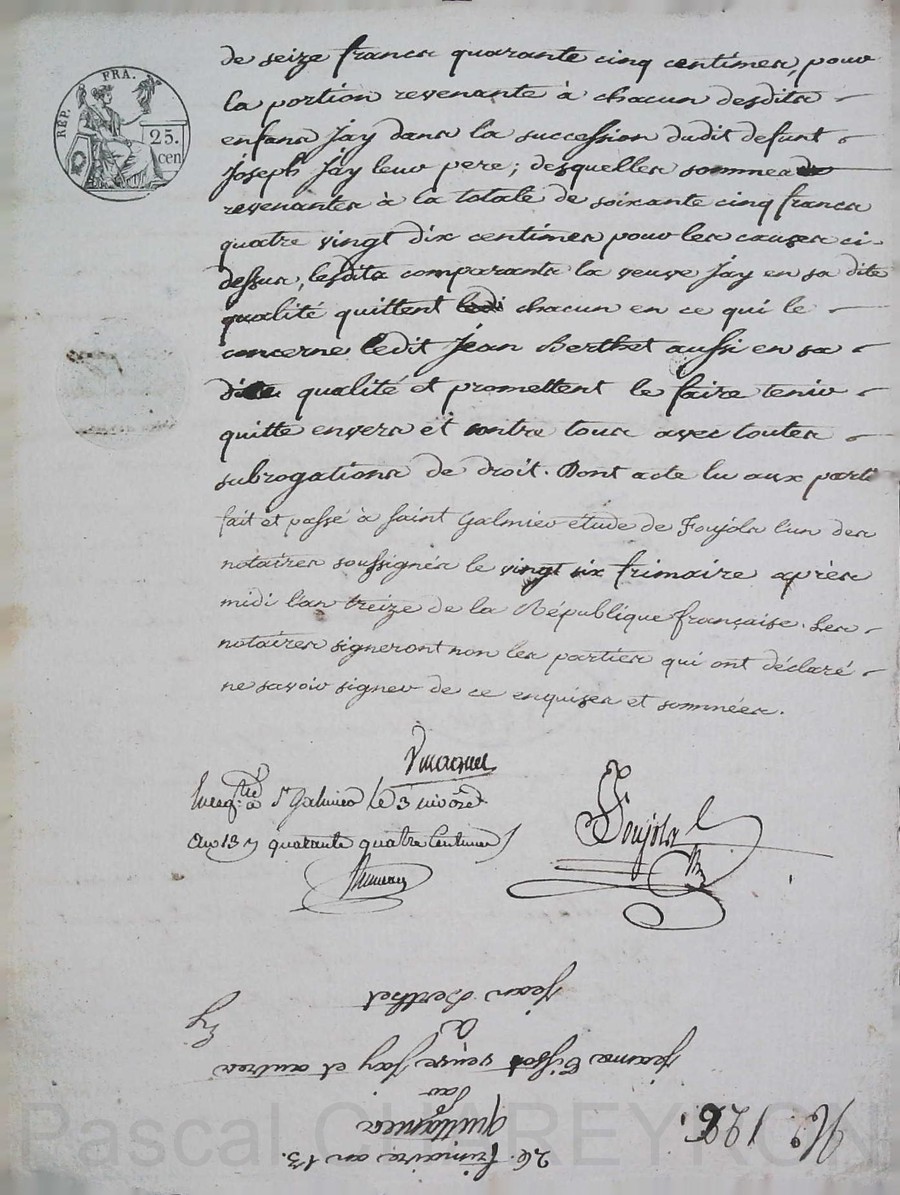 RÉP. FRA.
25.
cen
de seize francs quarante cinq centimes, pour
la portion revenante à chacun desdits
enfans Jay dans la succession dudit defunt
Joseph Jay leur pere; desquelles sommes
revenantes à la totale de soixante cinq francs
quatre vingt dix centimes pour les causes ci-
dessus, lesdits comparants la veuve Jay en sa dite
qualité quittent chacun en ce qui le
concerne ledit Jean Berthet aussi en sa
dite qualité et promettent le faire tenir
quitte envers et contre tous avec toutes
subrogations de droit. Dont acte lu aux parti
fait et passé à Saint Galmier étude de Foujols l'un des
notaires soussignés le vingt six frimaire après
midi l'an treize de la République française. Les
notaires signeront non les parties qui ont déclaré
ne savoir signer de ce enquises et sommées.
Enregtré à St Galmier le 3 nivose
an 13 quarante quatre centimes
Foujols
26. frimaire an 13.
quittances
par
Jeanne Tissot veuve Jay et autres
à
Jean Berthet
No. 126.
Pascal CHAREYRON